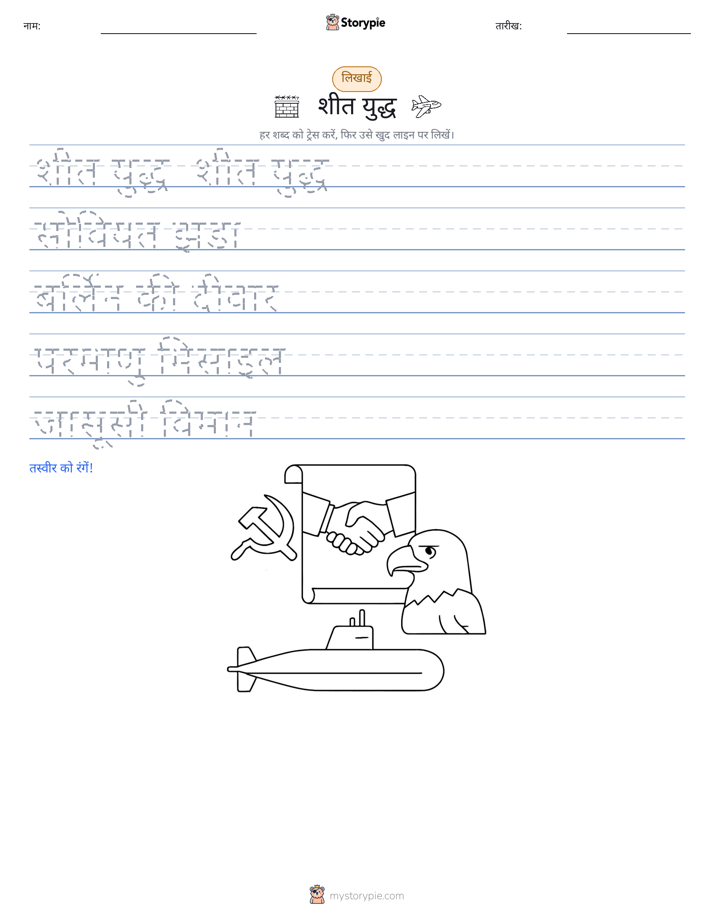 नाम:
Storypie
तारीख:
लिखाई
शीत युद्ध
हर शब्द को ट्रेस करें, फिर उसे खुद लाइन पर लिखें।
शीत युद्ध शीत युद्ध
सोवियत झंडा
बर्लिन की दीवार
परमाणु मिसाइल
जासूसी विमान
तस्वीर को रंगें!
mystorypie.com